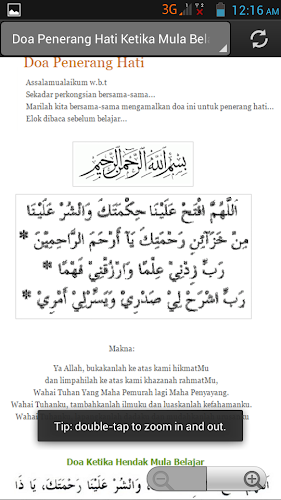 3G 12:16 AM
Doa Penerang Hati Ketika Mula Bela
Doa Penerang Hati
Assalamualaikum w.b.t
Sekadar perkongsian bersama-sama...
Marilah kita bersama-sama mengamalkan doa ini untuk penerang hati...
Elok dibaca sebelum belajar...
بِسْمِ اللهِ الرَّحْمٰنِ الرَّحِيْمِ
اَللّٰهُمَّ افْتَحْ عَلَيْنَا حِكْمَتَكَ وَانْشُرْ عَلَيْنَا
مِنْ خَزَآئِنِ رَحْمَتِكَ يَآ أَرْحَمَ الرَّاحِمِيْنَ *
رَبِّ زِدْنِيْ عِلْمًا وَارْزُقْنِيْ فَهْمًا *
رَبِّ اشْرَحْ لِيْ صَدْرِيْ وَيَسِّرْلِيْ أَمْرِيْ *
Makna:
Ya Allah, bukakanlah ke atas kami hikmatMu
dan limpahilah ke atas kami khazanah rahmatMu,
Wahai Tuhan Yang Maha Pemurah lagi Maha Penyayang.
Wahai Tuhanku, tambahkanlah ilmuku dan luaskanlah kefahamanku.
Tip: double-tap to zoom in and out.
Doa Ketika Hendak Mula Belajar
وَانْشُرْ عَلَيْنَا رَحْمَتَكَ، يَا ذَا